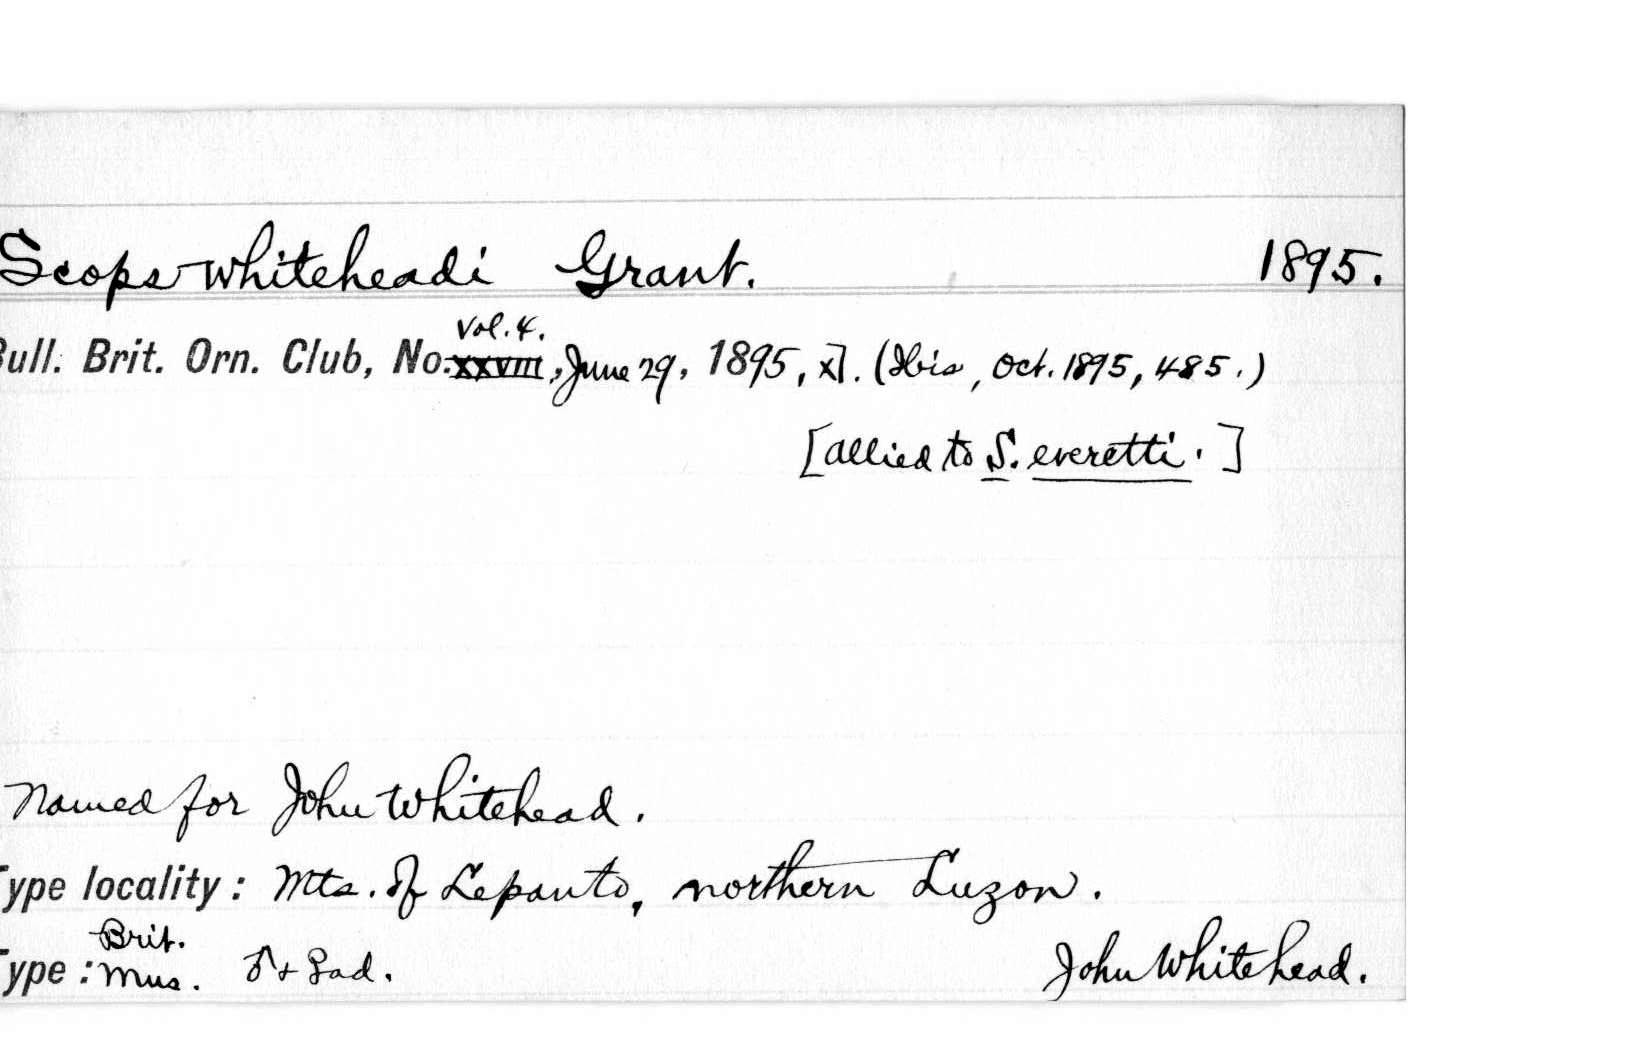 Scops whiteheadi Grant. 1895.
Vol. 4.
Bull. Brit. Orn. Club, No. XXVIII, June 29, 1895, xl. (Ibis, Oct. 1895, 485.)
[allied to S. everetti.]
Named for John Whitehead.
Type locality: Mts. of Lepanto, northern Luzon.
Brit.
Type: Mus. ♂ + ♀ ad. John Whitehead.